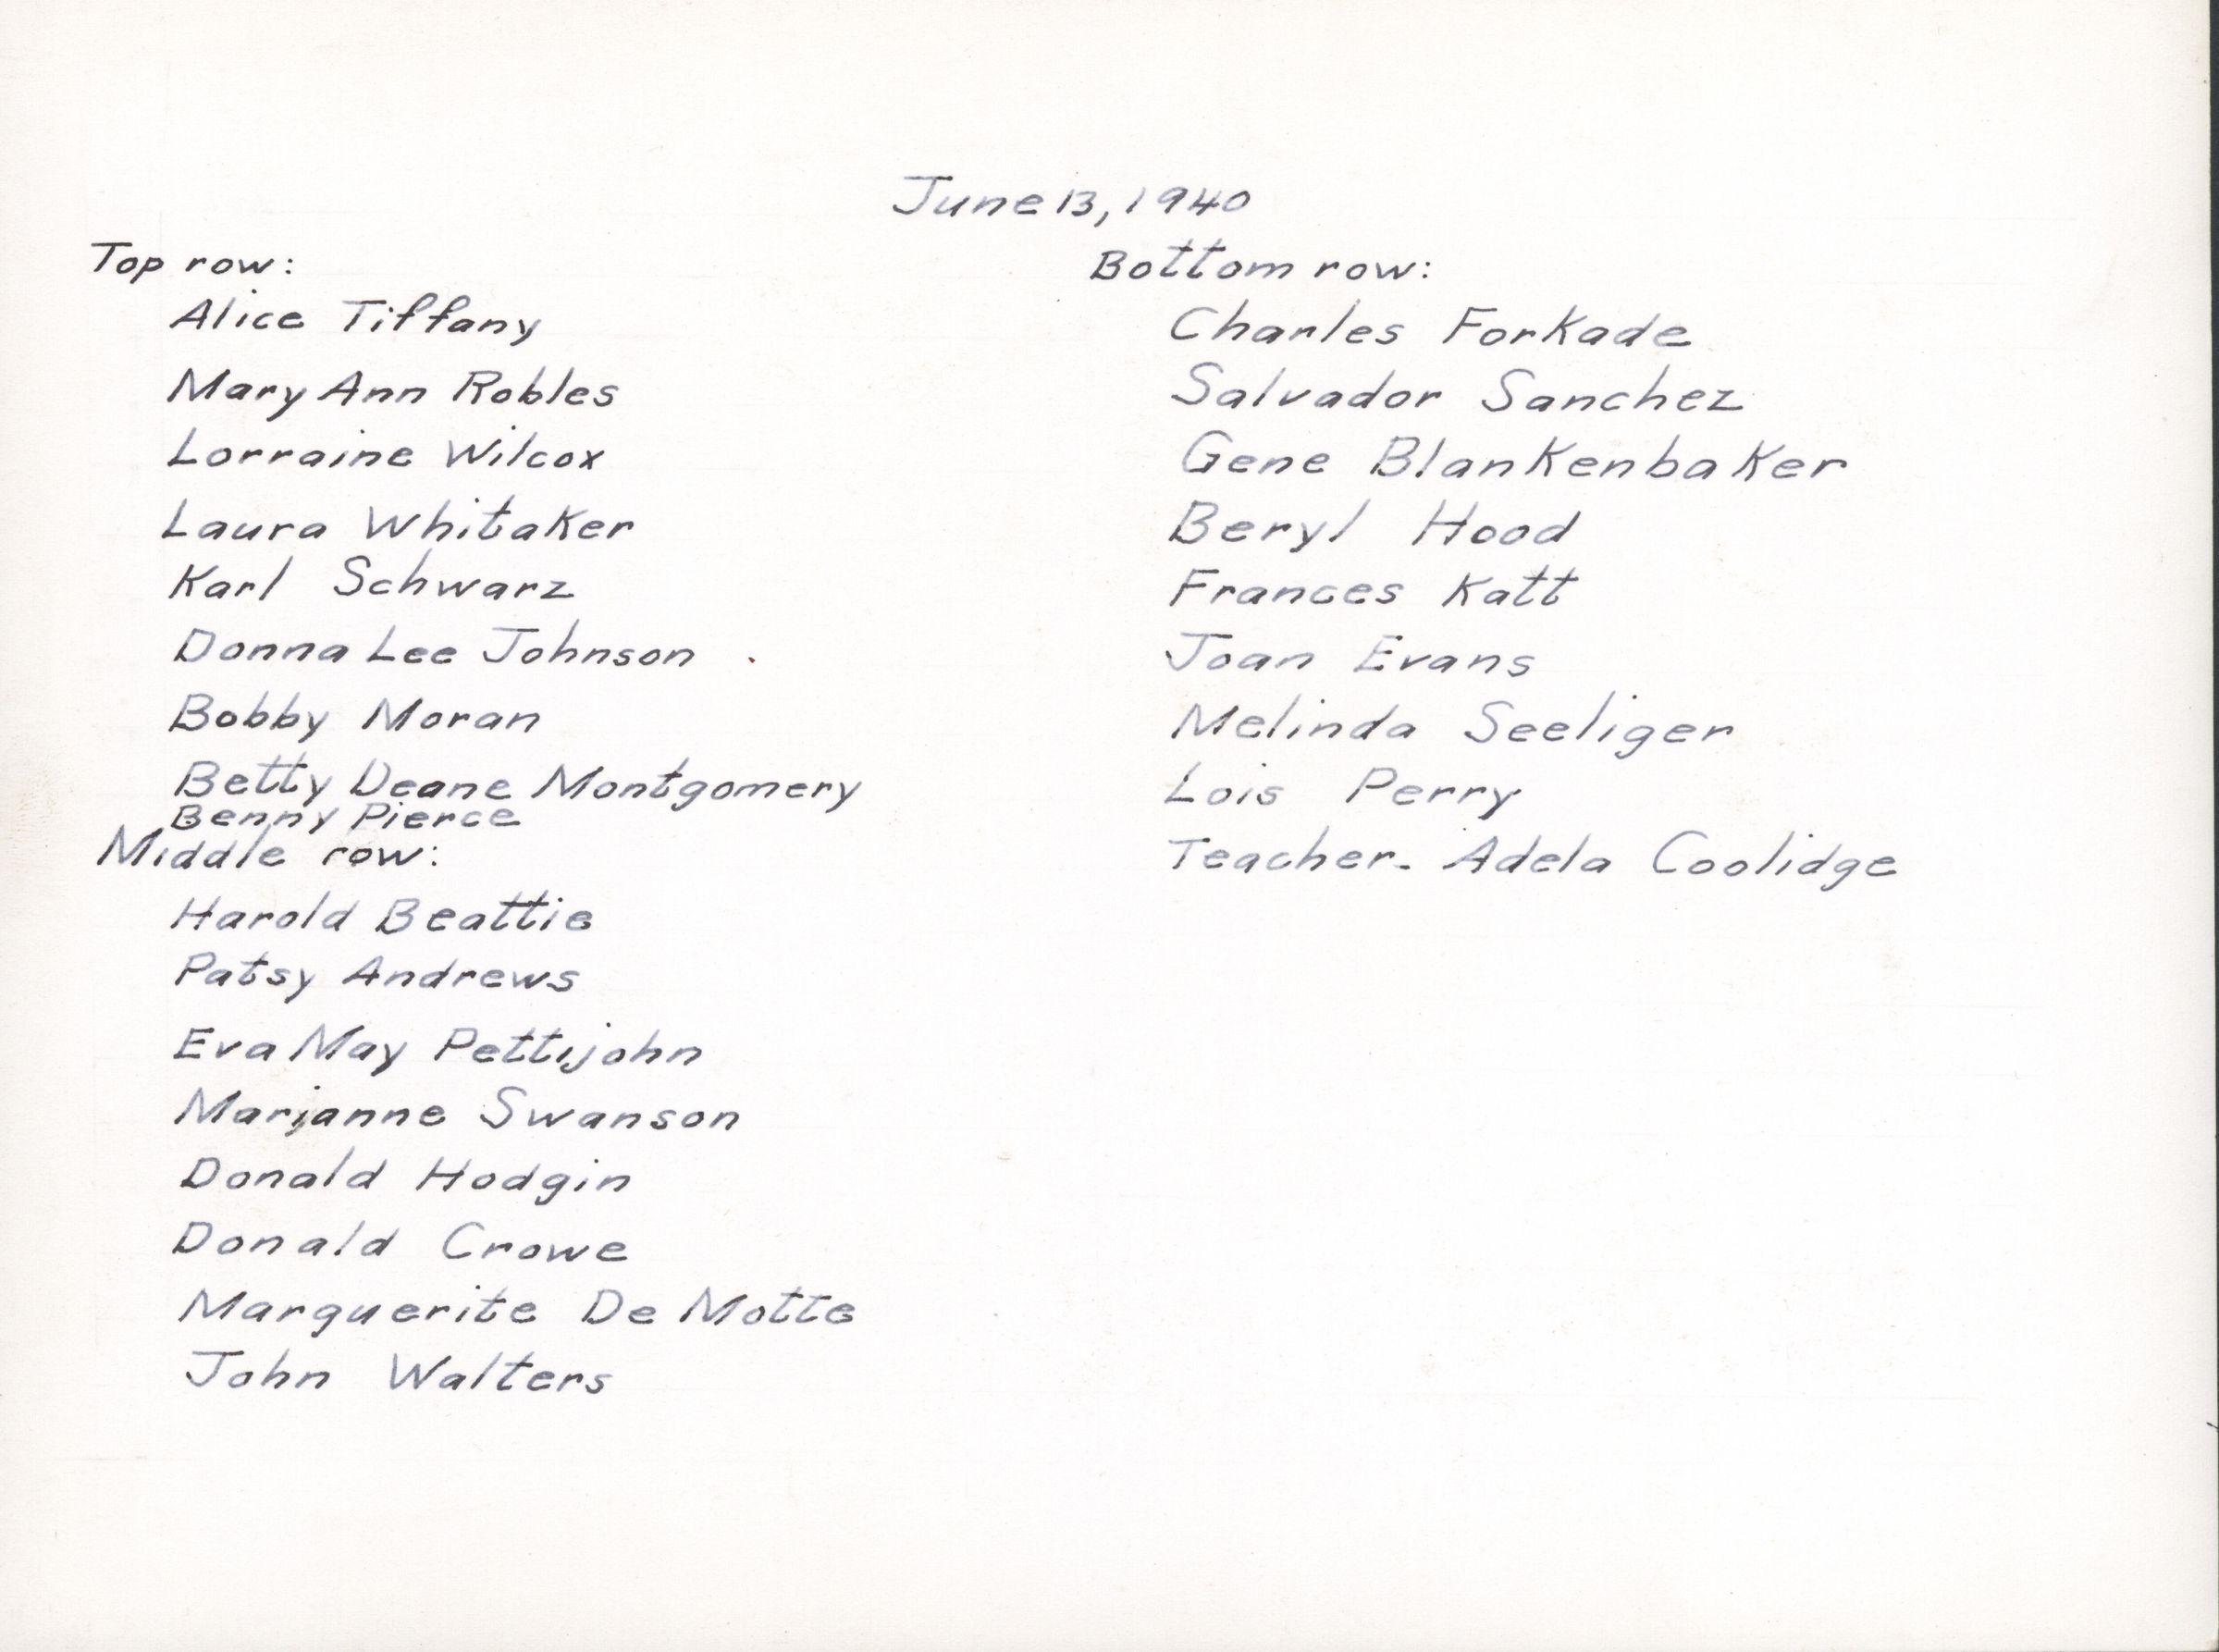 June 13, 1940
Top row:
Alice Tiffany
Mary Ann Robles
Lorraine Wilcox
Laura Whitaker
Karl Schwarz
Donna Lee Johnson
Bobby Moran
Betty Deane Montgomery
Benny Pierce
Middle row:
Harold Beattie
Patsy Andrews
Eva May Pettijohn
Marjanne Swanson
Donald Hodgin
Donald Crowe
Marguerite De Motte
John Walters
Bottom row:
Charles Forkade
Salvador Sanchez
Gene Blankenbaker
Beryl Hood
Frances Katt
Joan Evans
Melinda Seeliger
Lois Perry
Teacher- Adela Coolidge